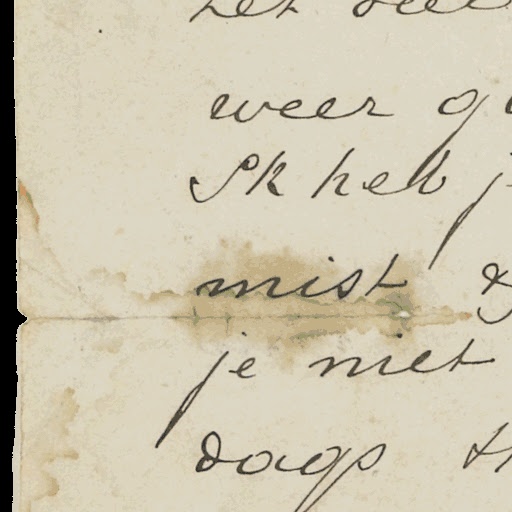 het
weer
Ik heb
mist &
je niet
dags